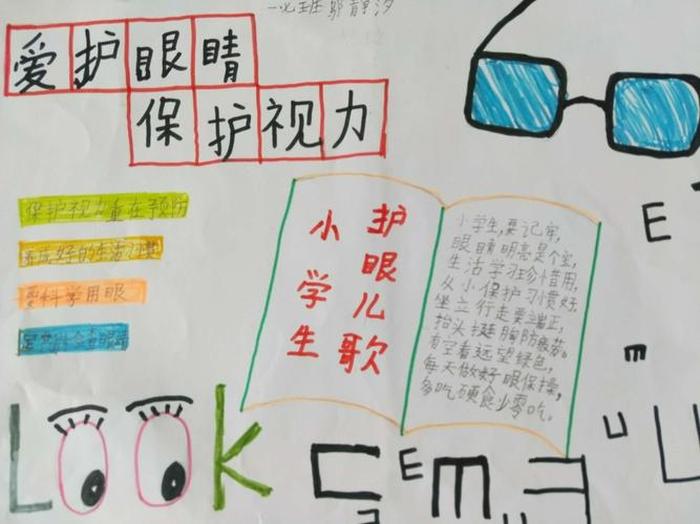 爱护眼睛
保护视力
保护视力重在预防
要科学用眼
小学生
护眼儿歌
小学生,要记牢,
眼睛明亮是个宝,
生活学习珍惜用,
从小保护习惯好.
坐立行走要端正,
抬头挺胸防疲劳。
有空看远望绿色,
每天做好眼保操,
多吃硬食少零吃.
LOOK
E
E
m
E
m